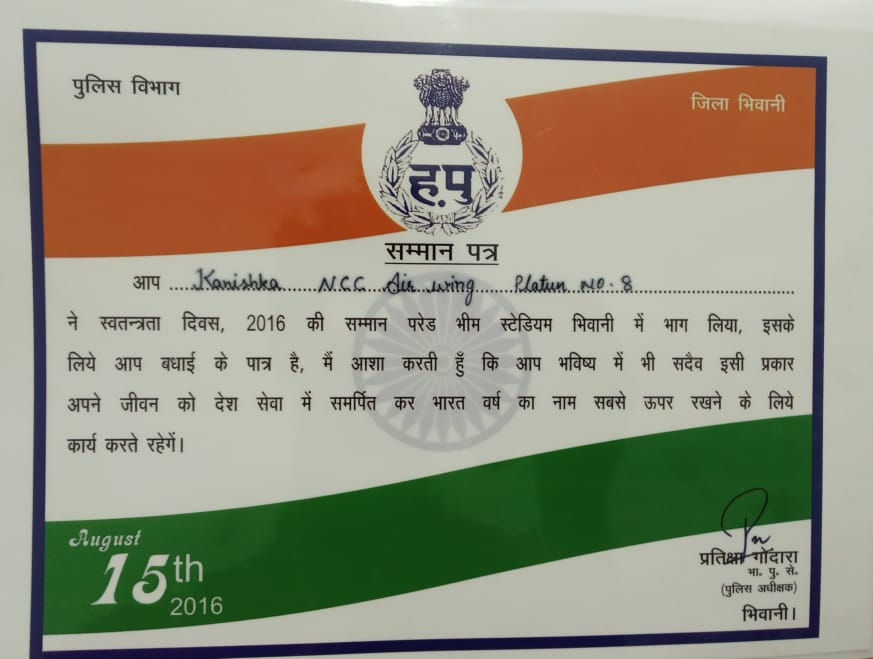 पुलिस विभाग
जिला भिवानी
ह.पु
सम्मान पत्र
आप ....Kanishka......NCC Air wing......Platun NO. 8..............................
ने स्वतन्त्रता दिवस, 2016 की सम्मान परेड भीम स्टेडियम भिवानी में भाग लिया, इसके
लिये आप बधाई के पात्र है, मैं आशा करती हुँ कि आप भविष्य में भी सदैव इसी प्रकार
अपने जीवन को देश सेवा में समर्पित कर भारत वर्ष का नाम सबसे ऊपर रखने के लिये
कार्य करते रहेगें।
August
15th
2016
प्रतिक्षा गोंदारा
भा. पु. से.
(पुलिस अधीक्षक)
भिवानी।